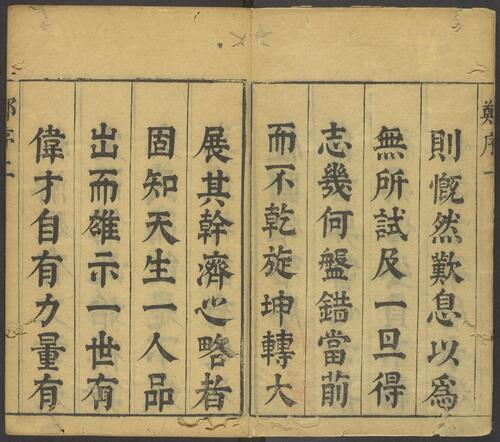 鄭序一
則慨然歎息以爲
無所試及一旦得
志幾何盤錯當前
而不乾旋坤轉大
展其幹濟之略者
固知天生一人品
出而雄示一世有
偉才自有力量有
鄭序二